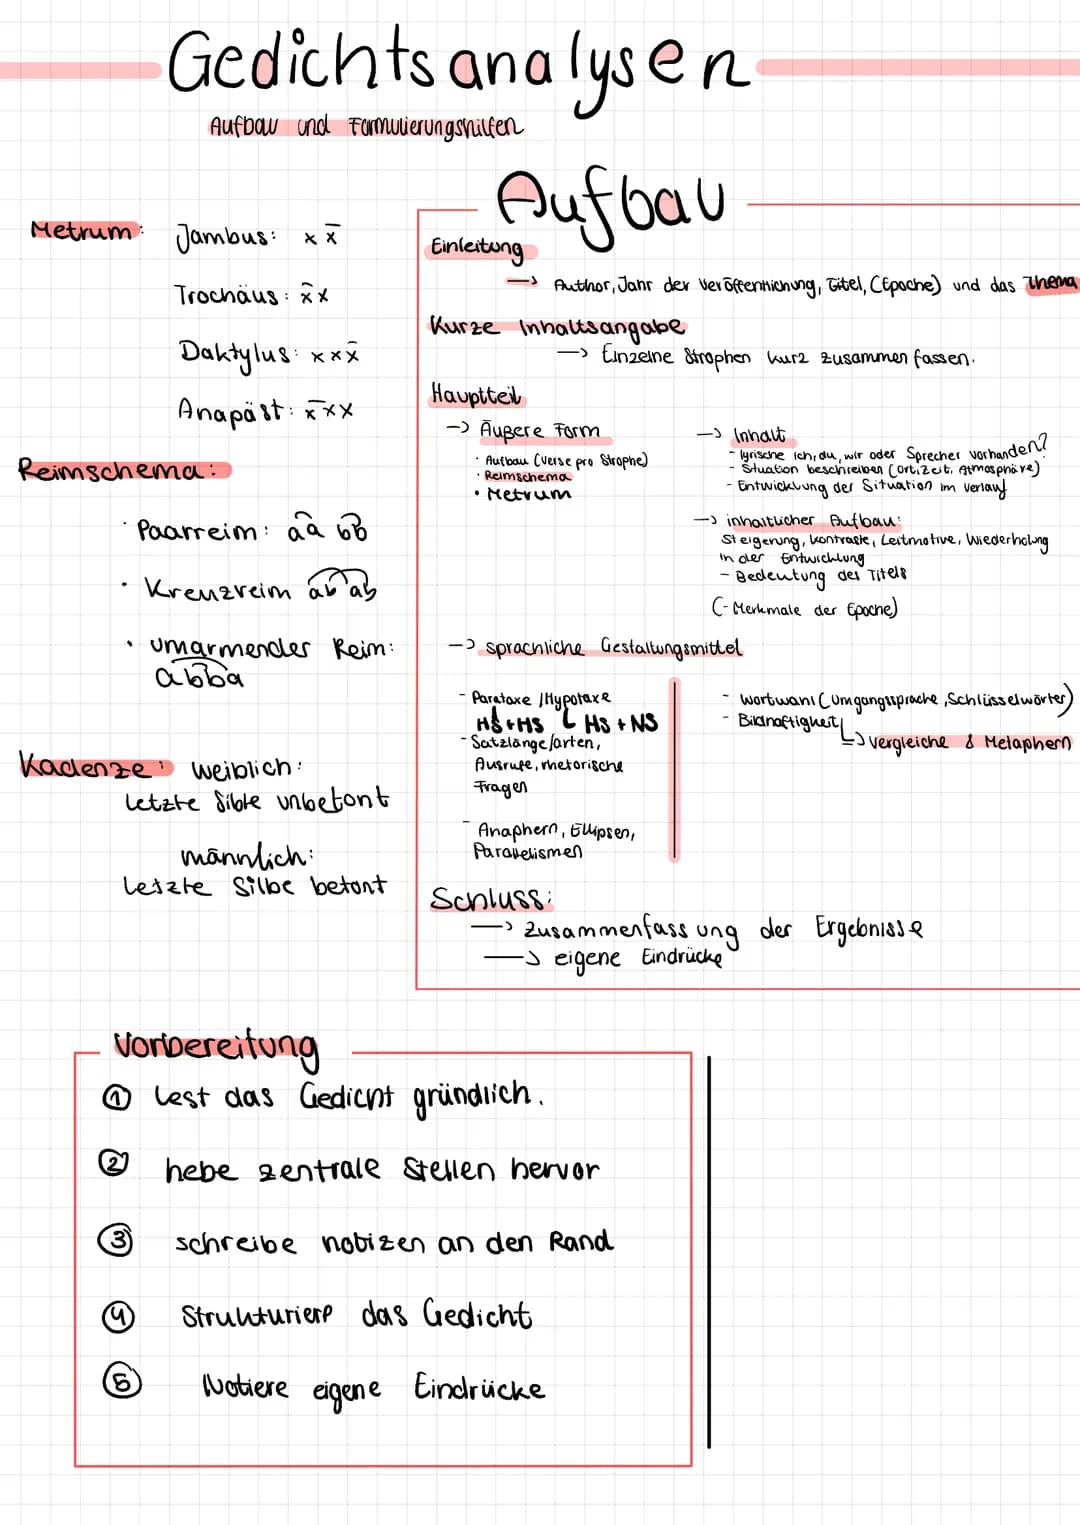 Gedichtsanalysen
Aufbau und Formulierungshilfen
Metrum: Jambus: x x̄
Trochäus: x̄ x
Daktylus: x x x̄
Anapäst: x̄ x x
Reimschema:
· Paarreim: aa bb
· Kreuzreim ab ab
· umarmender Reim:
abba
Kadenze: weiblich:
letzte Silbe unbetont
männlich:
letzte Silbe betont
Aufbau
Einleitung
—> Author, Jahr der Veröffentlichung, Titel, (Epoche) und das Thema
Kurze Inhaltsangabe
—> Einzelne Strophen kurz zusammen fassen.
Hauptteil
—> Äußere Form
· Aufbau (Verse pro Strophe)
· Reimschema
· Metrum
—> Inhalt
- lyrische Ich, du, wir oder Sprecher vorhanden?
- Situation beschreiben (Ort, Zeit, Atmosphäre)
- Entwicklung der Situation im verlauf
—> inhaltlicher Aufbau:
Steigerung, Kontraste, Leitmotive, Wiederholung
in der Entwicklung
- Bedeutung des Titels
(- Merkmale der Epoche)
—> sprachliche Gestaltungsmittel
- Parataxe / Hypotaxe
HS + HS ↳ HS + NS
- Satzlänge/arten,
Ausrufe, rhetorische
Fragen
- Anaphern, Ellipsen,
Paralellismen
- Wortwahl (Umgangssprache, Schlüsselwörter)
- Bildhaftigkeit
↳ Vergleiche & Metaphern
Schluss:
—> Zusammenfassung der Ergebnisse
—> eigene Eindrücke
Vorbereitung
① Lest das Gedicht gründlich.
② hebe zentrale Stellen hervor
③ schreibe notizen an den Rand
④ Strukturiere das Gedicht
⑤ Notiere eigene Eindrücke